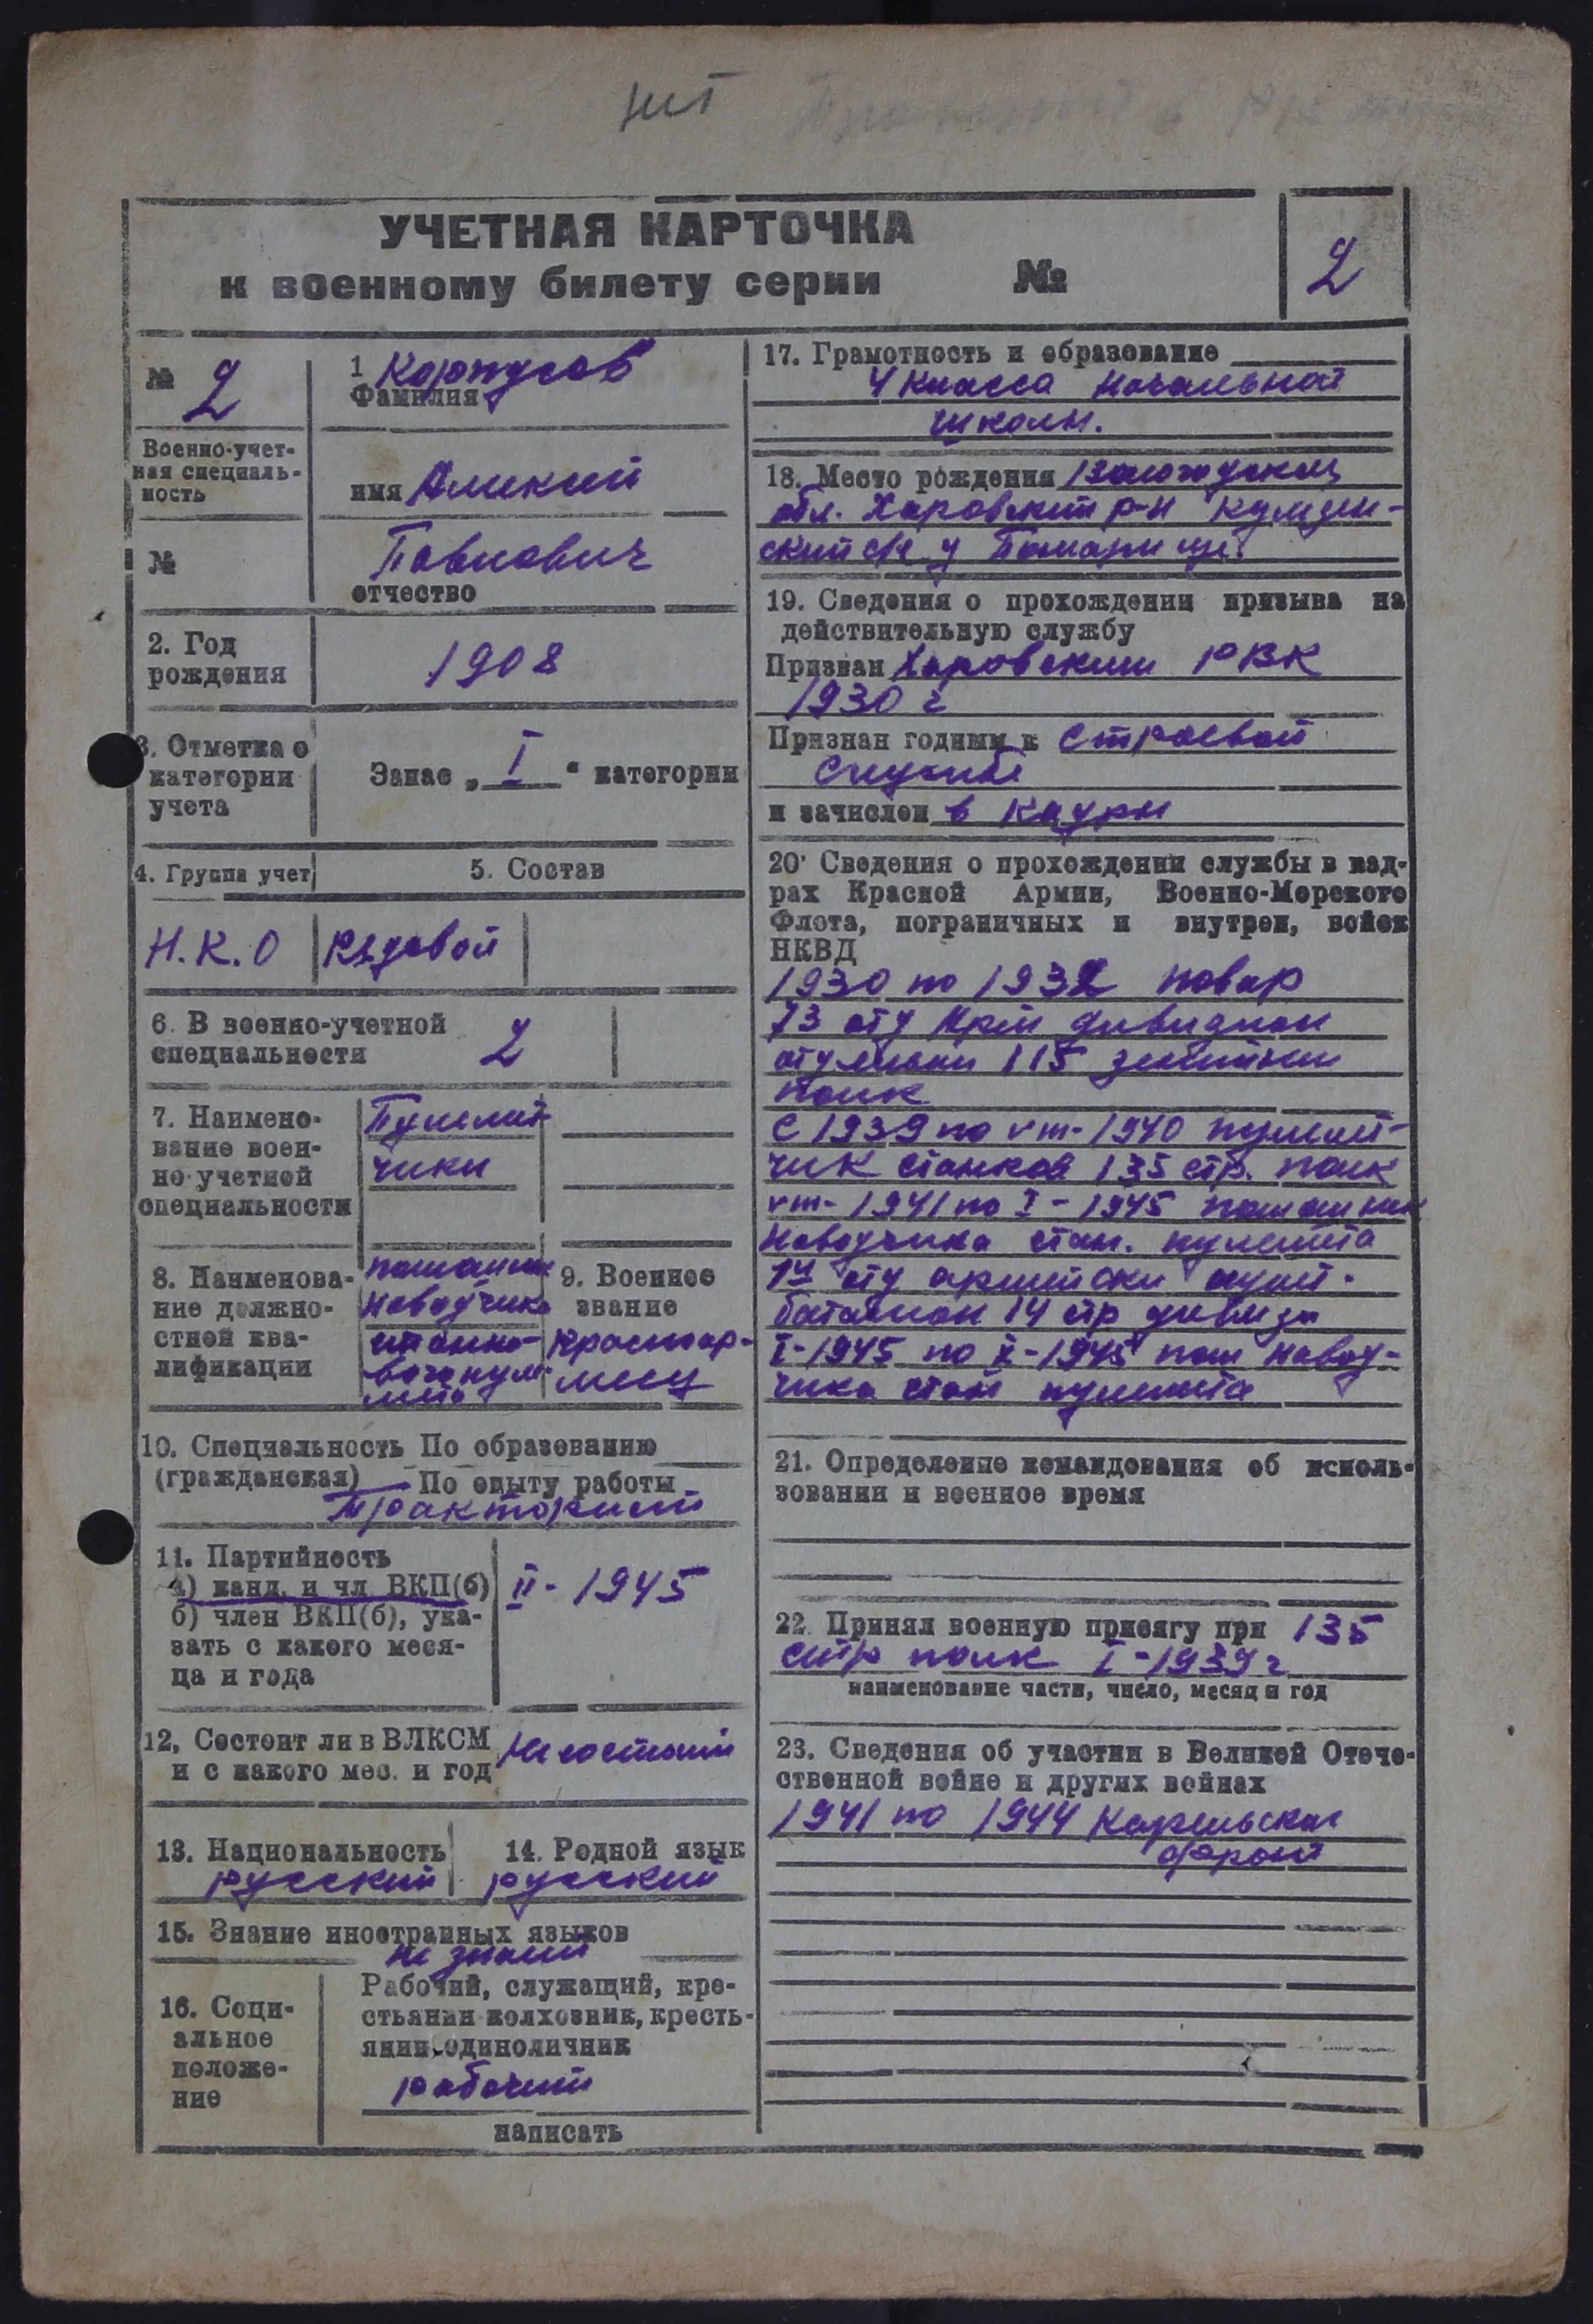 УЧЕТНАЯ КАРТОЧКА
к военному билету серии №
2
№ 2
Военно-учет-
ная специаль-
ность
№
1 Корпусов
Фамилия
имя Алексей
Павлович
отчество
2. Год
рождения
1908
3. Отметка о
категории
учета
Запас „ I “ категории
4. Группа учет
5. Состав
Н.К.О
Рядовой
6. В военно-учетной
специальности
2
7. Наимено-
вание воен-
но-учетной
специальности
Пулемет
чики
8. Наименова-
ние должно-
стной ква-
лификации
помошник
Наводчика
станко-
вого пуле-
мета
9. Военное
звание
Красноар-
меец
10. Специальность По образованию
(гражданская) По опыту работы
Тракторист
11. Партийность
а) канд. и чл ВКП(б)
б) член ВКП(б), ука-
зать с какого меся-
ца и года
II - 1945
12, Состоит ли в ВЛКСМ
и с какого мес. и год
Не состоит
13. Национальность
русский
14. Родной язык
русский
15. Знание иностранных языков
не знает
16. Соци-
альное
положе-
ние
Рабочий, служащий, кре-
стьянин-колхозник, кресть-
янин-единоличник
рабочий
написать
17. Грамотность и образование
4 класса Начальной
школы.
18. Место рождения Вологодская
обл. Харовский р-н
ский с/с д
19. Сведения о прохождении призыва на
действительную службу
Призван Харовским РВК
1930 г
Признан годным к строевой
службе
и зачислен в кадры
20. Сведения о прохождении службы в кад-
рах Красной Армии, Военно-Морского
Флота, пограничных и внутрен, войск
НКВД
1930 по 1932 повар
73 отд дивизион
115 зенитный
полк
С 1939 по VIII-1940 пулемет-
чик станков 135 стр. полк
VIII-1941 по I-1945 помошник
Наводчика стан. пулемета
14 отд армейски пулем.
батальон 14 стр дивизи
I-1945 по X-1945 пом навод-
чика стан пулемета
21. Определение командования об исполь-
зовании и военное время
22. Принял военную присягу при 135
стр полк I-1939 г
наименование части, число, месяц и год
23. Сведения об участии в Великой Отече-
ственной войне и других войнах
1941 по 1944 Карельский
фронт